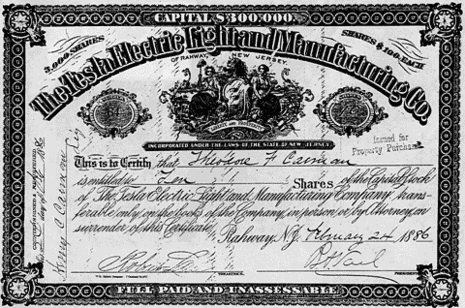 CAPITAL $300,000.
3,000 SHARES
SHARES $100 EACH
The Tesla Electric Light and Manufacturing Co.
OF RAHWAY, NEW JERSEY.
LIBERTY AND PROSPERITY
INCORPORATED UNDER THE LAWS OF THE STATE OF NEW JERSEY
Issued for
Property Purchase
This is to Certify that Theodore F Carman
is entitled to Ten Shares of the Capital Stock
of The Tesla Electric Light and Manufacturing Company, trans-
ferable only on the books of the Company, in person, or by Attorney, on
surrender of this Certificate. Rahway, N.J. February 24 1886
TREASURER.
PRESIDENT.
FULL PAID AND UNASSESSABLE
1886